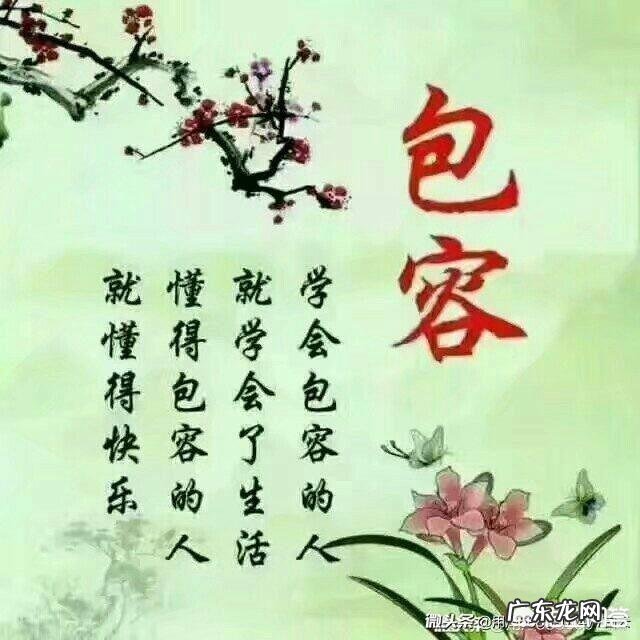 包容
学会包容的人
就学会了生活
懂得包容的人
就懂得快乐
微头条
广东龙网